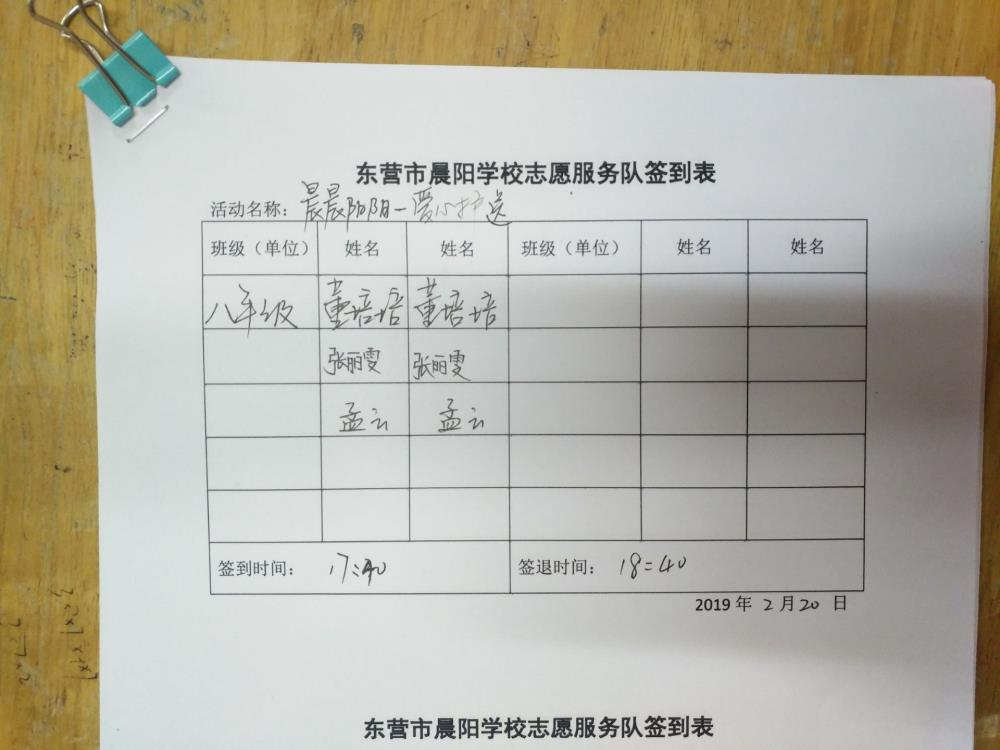 东营市晨阳学校志愿服务队签到表
活动名称：晨晨阳阳一爱心护送
班级（单位） 姓名 姓名 班级（单位） 姓名 姓名
八年级 董培培 董培培
张丽雯 张丽雯
孟云 孟云
签到时间： 17:40 签退时间： 18:40
2019 年 2 月 20 日
东营市晨阳学校志愿服务队签到表